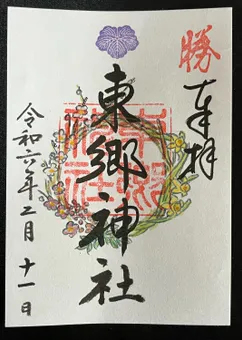 勝
奉拝
東郷神社
令和六年二月十一日